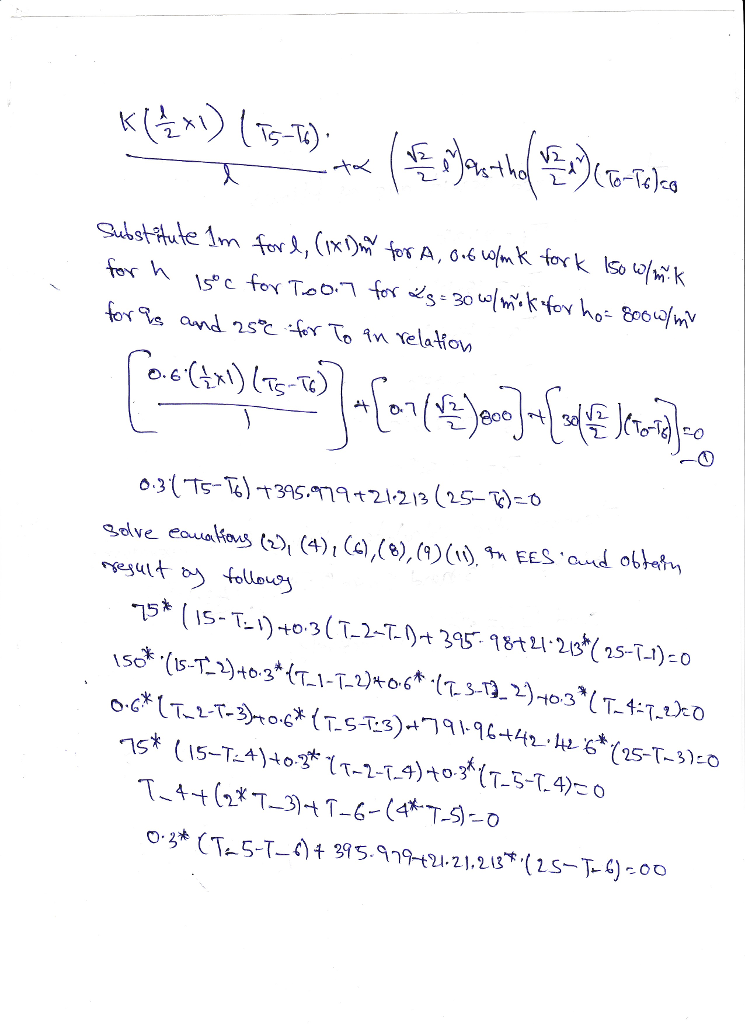 K(l/2 ×1) (T5-T6)
l
+α (√2/2 l²) qs + ho(√2/2 l²)(To-T6)=0
Substitute 1m for l, (1×1)m² for A, 0.6 w/mK for k 150 w/m².K
for h 15°C for T∞ 0.7 for αs = 30 w/m².K for ho = 800 w/m²
for qs and 25°C for To in relation
[0.6(1/2 ×1) (T5-T6)
1] + [0.7 (√2/2) 800] + [30(√2/2)(To-T6)]=0
-①
0.3(T5-T6) +395.979+21.213(25-T6)=0
Solve equations (2), (4), (6), (8), (9) (11). In EES and obtain
result as follows
75* (15-T_1) +0.3 (T_2-T_1) + 395.98+21.213*(25-T_1)=0
150* (15-T_2)+0.3*(T_1-T_2)+0.6* (T_3-T_2)+0.3*(T_4-T_2)=0
0.6* (T_2-T_3)+0.6* (T_5-T_3)+791.96+42.426*(25-T_3)=0
75* (15-T_4)+0.3* (T_2-T_4)+0.3*(T_5-T_4)=0
T_4+(2*T_3)+T_6-(4*T_5)=0
0.3* (T_5-T_6)+ 395.979+21.21.213*(25-T_6)=00